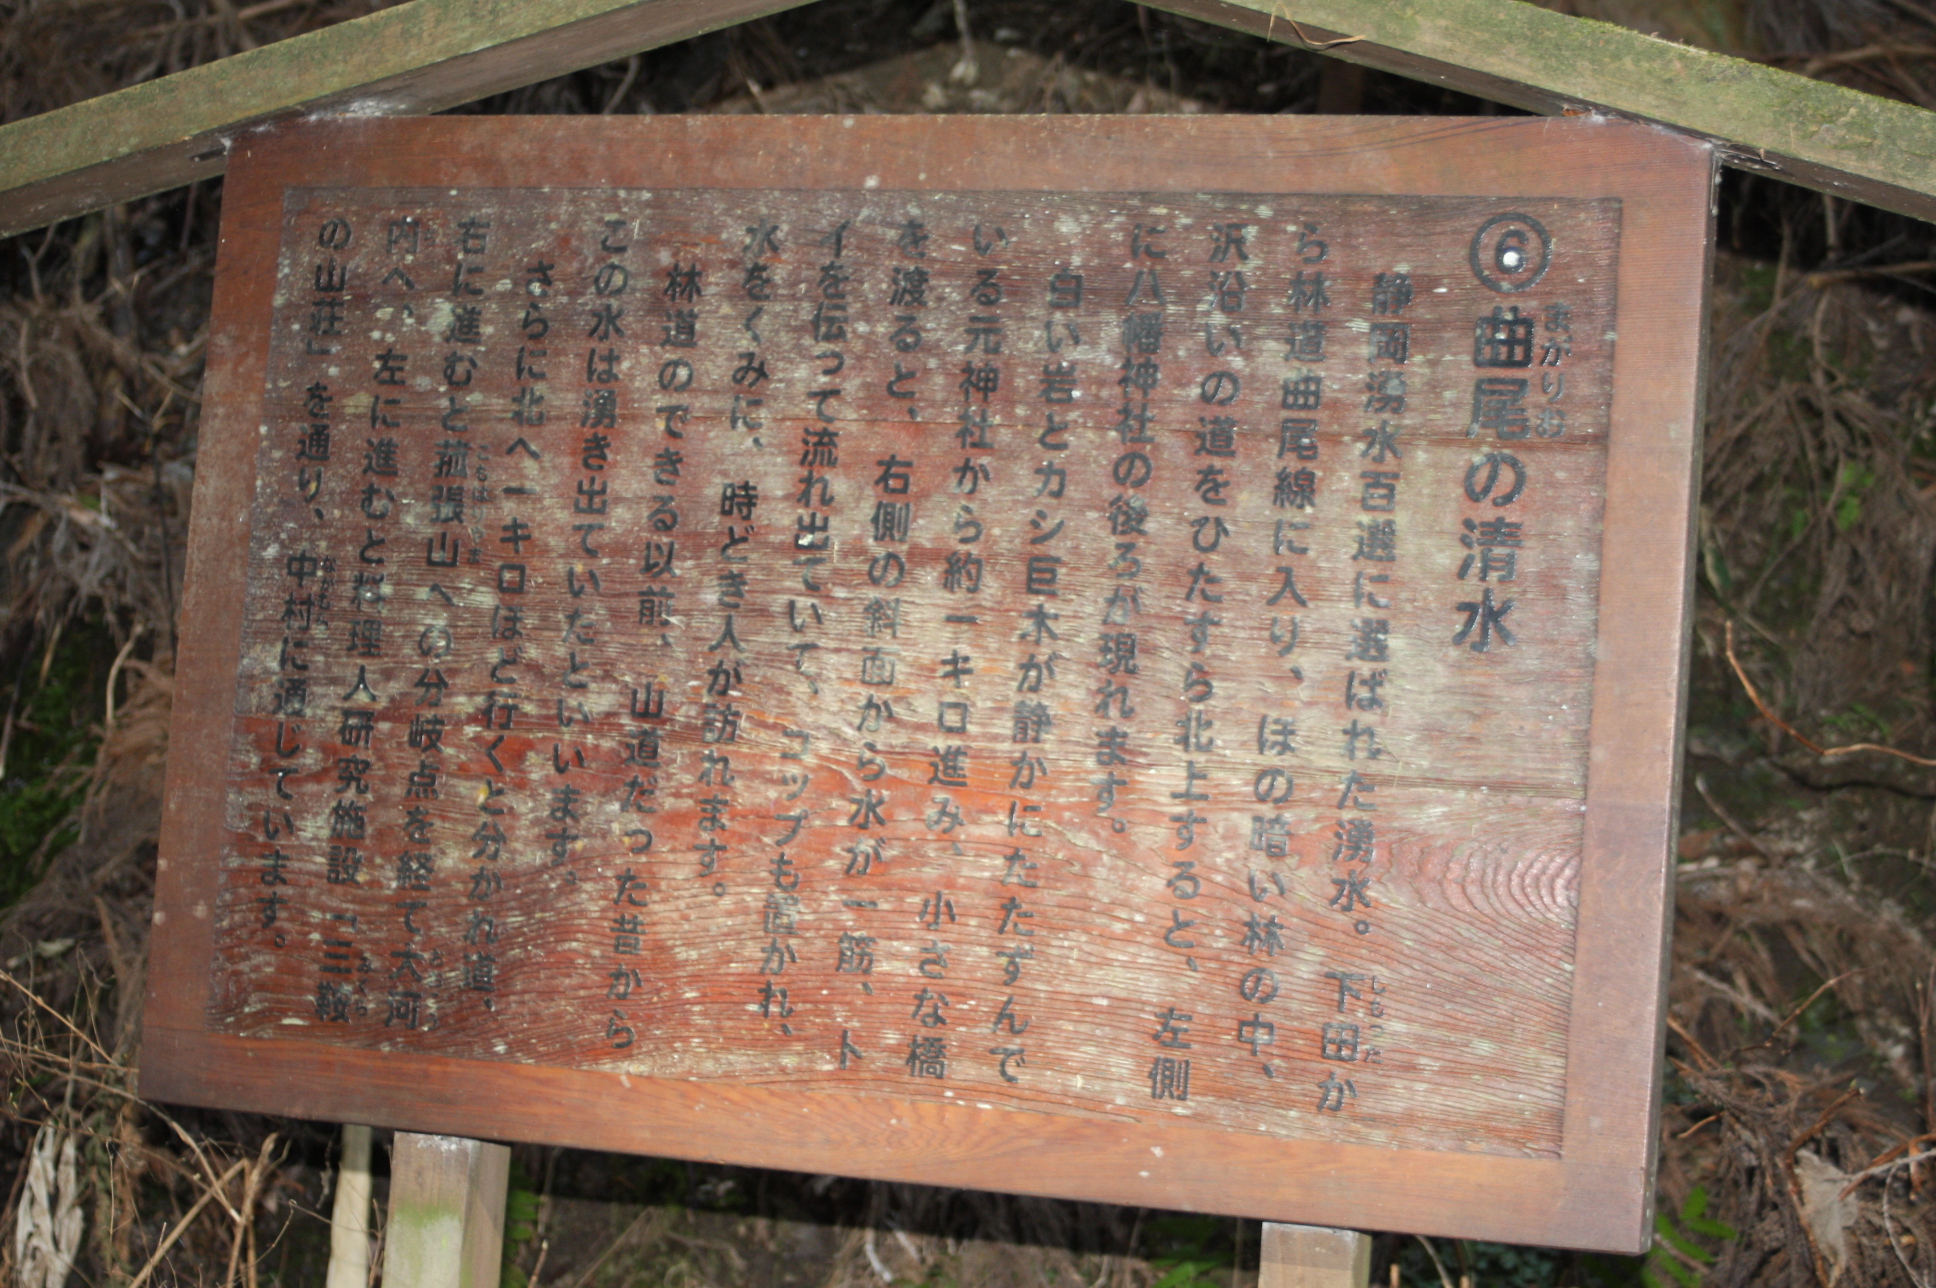 ⑥曲尾の清水
まがりお
静岡湧水百選に選ばれた湧水。下田か
しもった
ら林道曲尾線に入り、ほの暗い林の中、
沢沿いの道をひたすら北上すると、左側
に八幡神社の後ろが現れます。
白い岩とカシ巨木が静かにたたずんで
いる元神社から約一キロ進み、小さな橋
を渡ると、右側の斜面から水が一筋、ト
イを伝って流れ出ていて、コップも置かれ、
水をくみに、時どき人が訪れます。
林道のできる以前、山道だった昔から
この水は湧き出ていたといいます。
さらに北へ一キロほど行くと分かれ道、
右に進むと菰張山への分岐点を経て大河
こもはりやま
内へ、左に進むと料理人研究施設「三鞍
の山荘」を通り、中村に通じています。